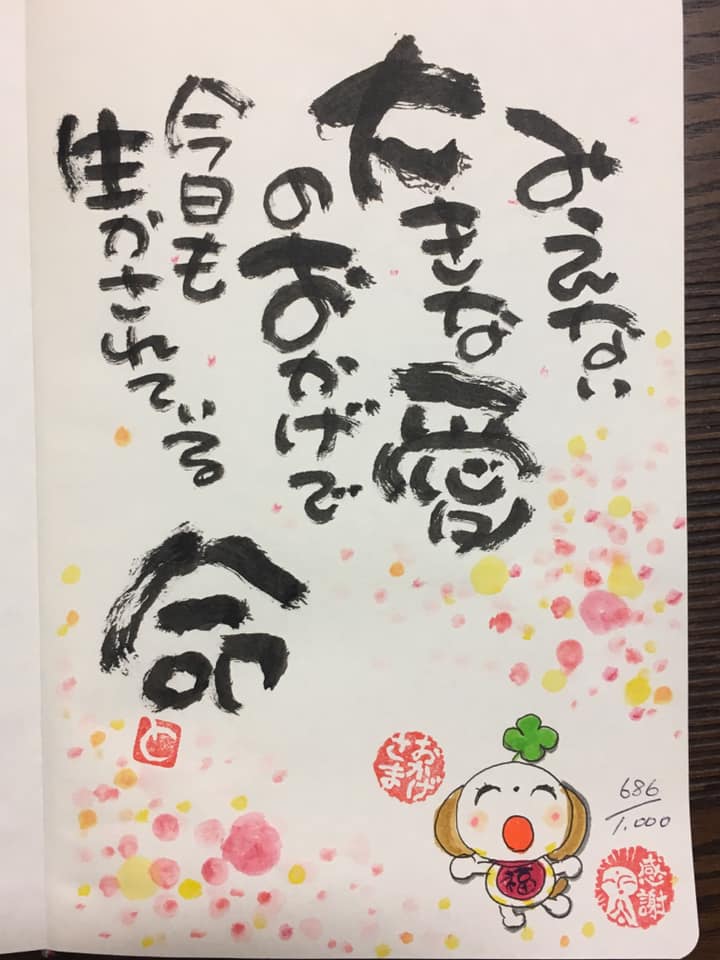 大きな愛
のおかげで
今日も
生かされている
命
と
おかげさま
福
686/1.000
感謝